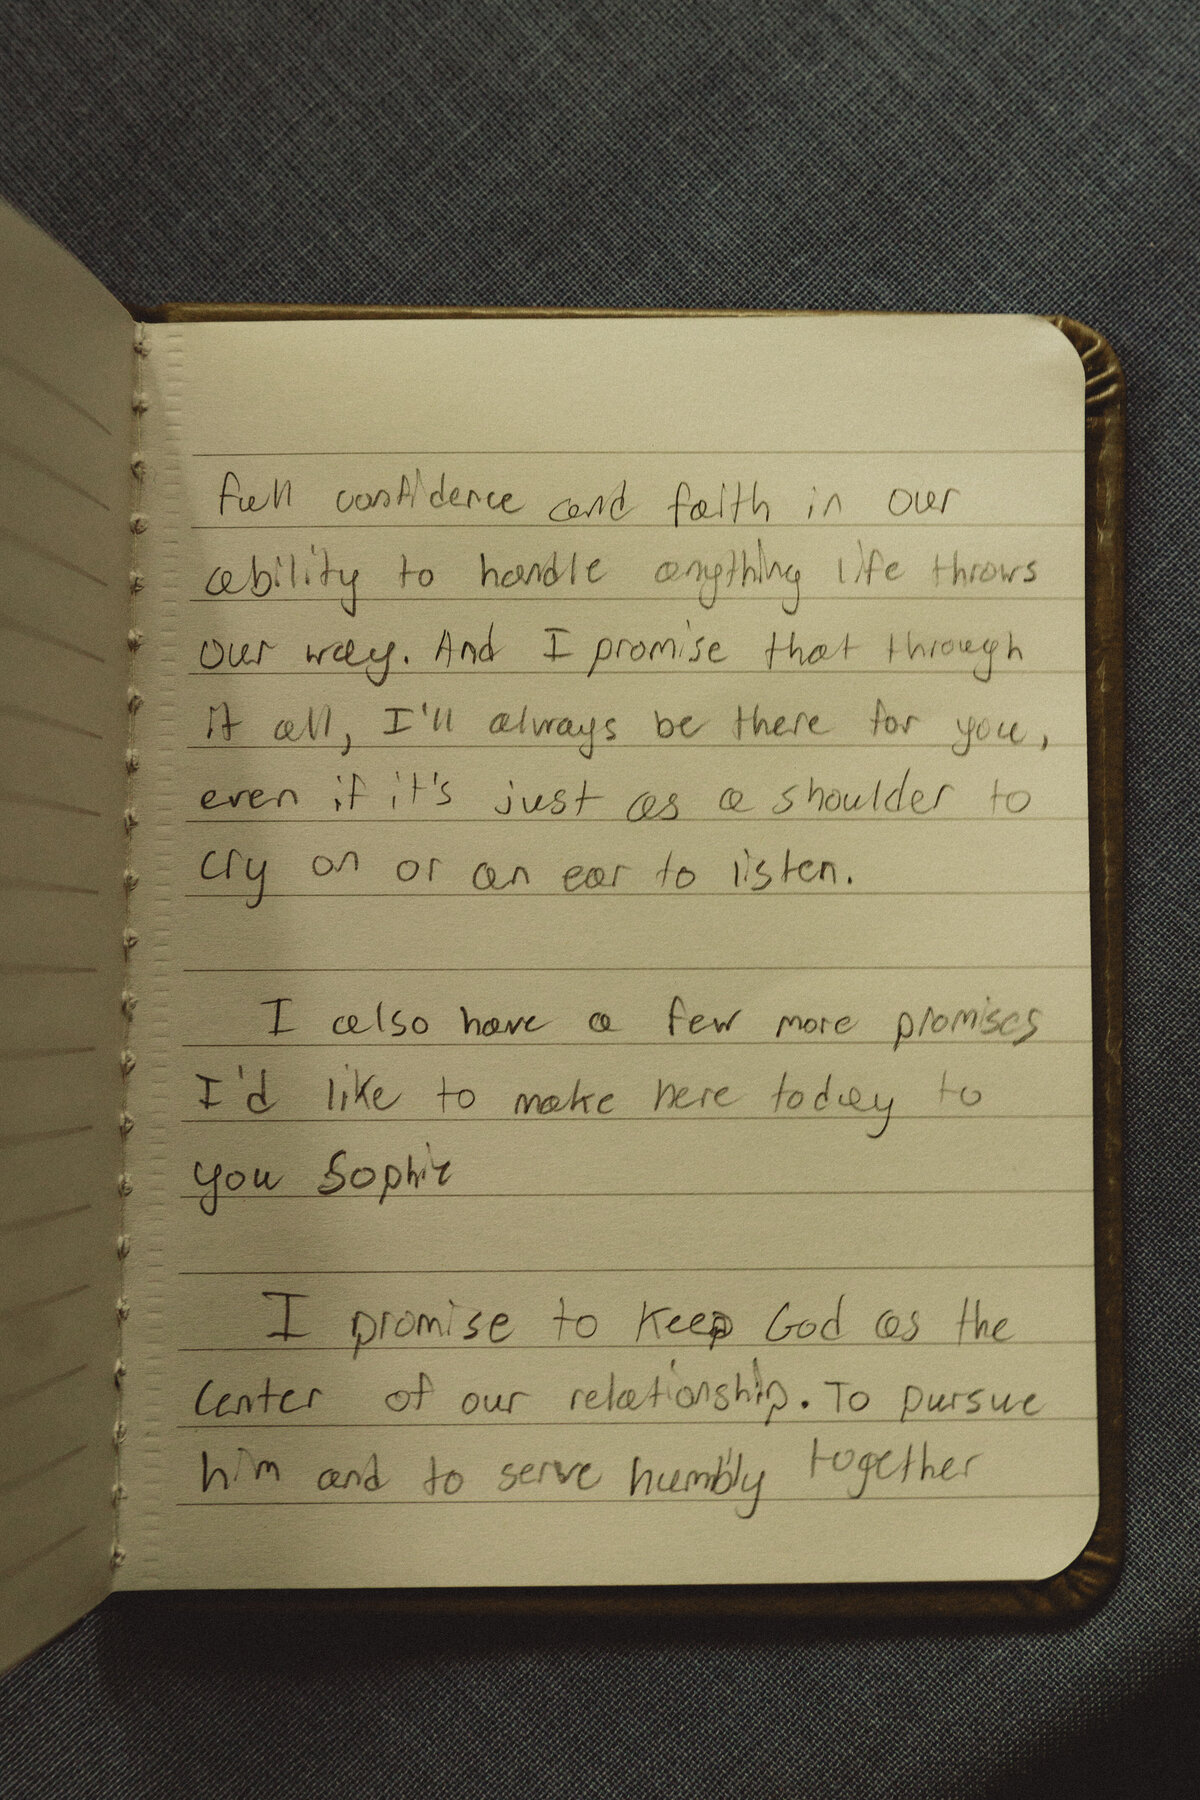 full confidence and faith in our
ability to handle anything life throws
our way. And I promise that through
it all, I'll always be there for you,
even if it's just as a shoulder to
cry on or an ear to listen.
I also have a few more promises
I'd like to make here today to
you Sophie
I promise to keep God as the
center of our relationship. To pursue
him and to serve humbly together